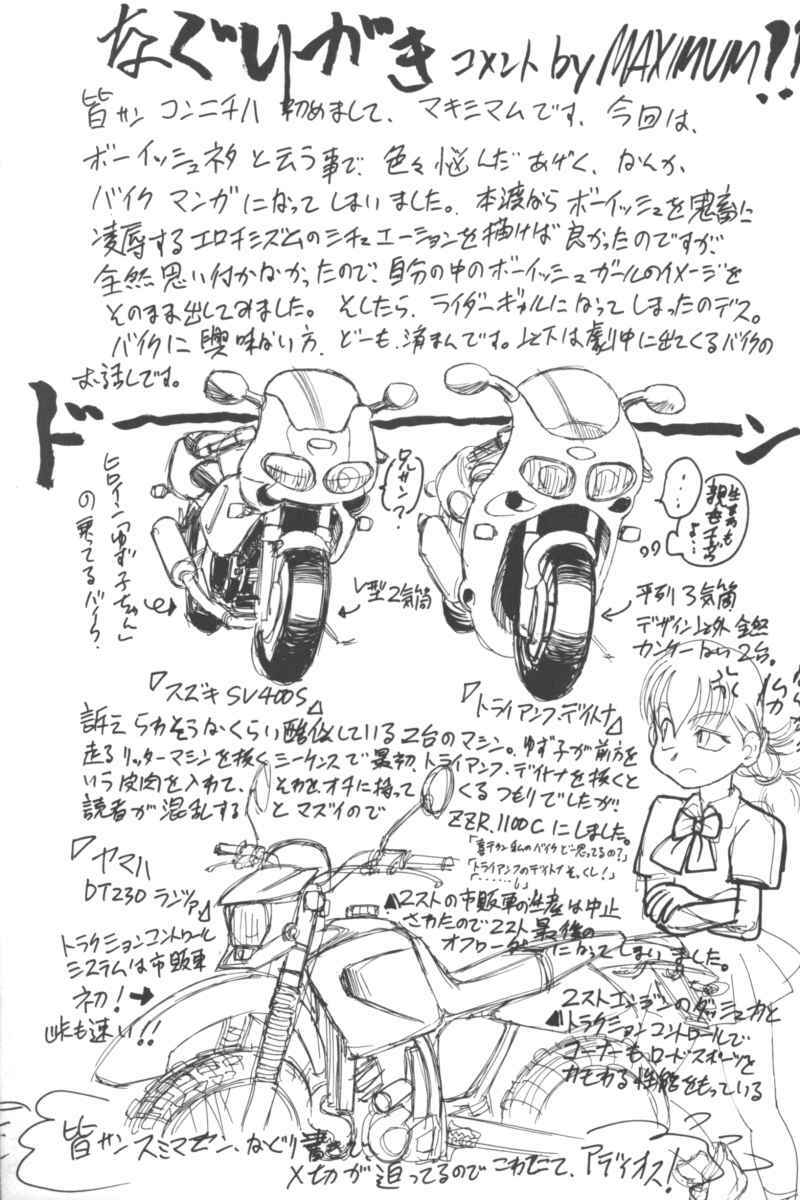 なぐりがき コメント by MAXIMUM!!
皆サン コンニチハ 初めまして、マキシマムです、今回は、
ボーイッシュネタと云う事で、色々悩んだあげく、なんか、
バイクマンガになってしまいました。本渡ならボーイッシュを鬼畜に
凌辱するエロチシズムのシチュエーションを描けば良かったのですが、
全然思い付かなかったので、自分の中のボーイッシュガールのイメージを
そのまま出してみました。そしたら、ライダーギャルになってしまったのデス。
バイクに興味ない方、どーも、済まんです。以下は劇中に出てくるバイクの
お話しです。
ドーーン
ヒロイン「ゆず子ちゃん」
の乗ってるバイク。
兄サン?
・・・
生まれも
親もチガウ
よ…
V型2気筒
並列3気筒
デザイン以外全然
カンケーない2台。
「スズキSV400S」
「トライアンフ・デイトナ」
訴えられそうなくらい酷似している2台のマシン。ゆず子が前方を
走るリッターマシンを抜くシーケンスで最初、トライアンフ・デイトナを抜くと
いう皮肉を入れて、それをオチに持って
くるつもりでしたが、
読者が混乱するとマズイので
ZZR1100Cにしました。
「トライアンフのデイトナそっくし!」
「・・・・・・」
「ヤマハ
DT230ランツァ」
トラクションコントロール
システムは市販車
初!
峠も速い!!
2ストの市販車の生産は中止
されたので2スト最後の
オフローダーになってしまいました。
2ストエンジンのダッシュ力と
トラクションコントロールで
コーナーも、ロードスポーツと
かわる性能をもっている
皆サンスミマセン、なぐり書きで、
〆切が迫ってるのでこれにて、アディオス!